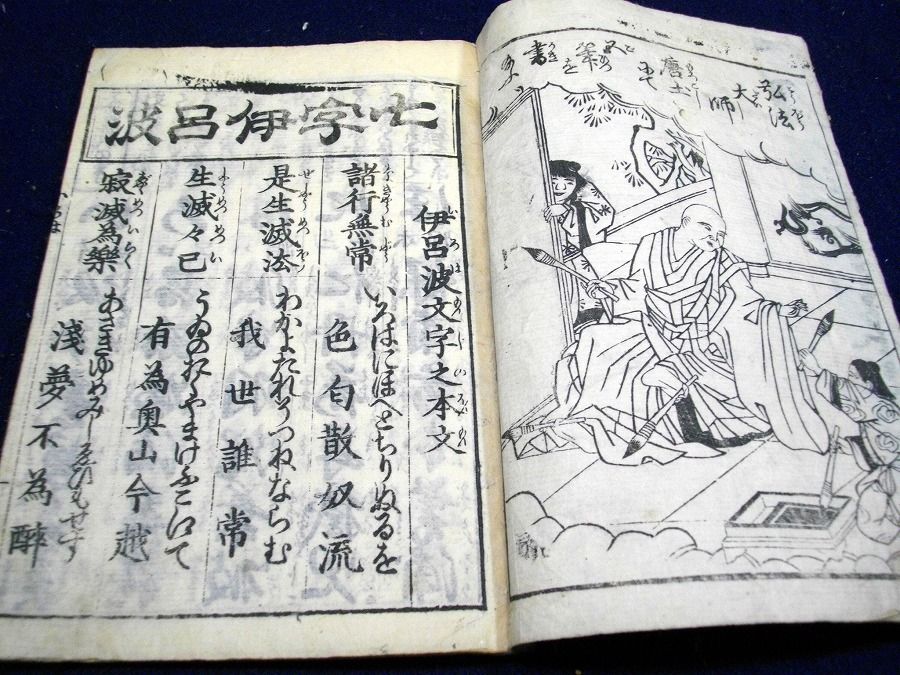 弘法
大師
唐土
にて
筆を
書
七字伊呂波
伊呂波文字之本文
諸行無常 いろはにほへとちりぬるを
色匂散奴流
是生滅法 わかよたれそつねならむ
我世誰常
生滅々已 うゐのおくやまけふこえて
有為奥山今越
寂滅為樂 あさきゆめみしゑひもせす
淺夢不為醉